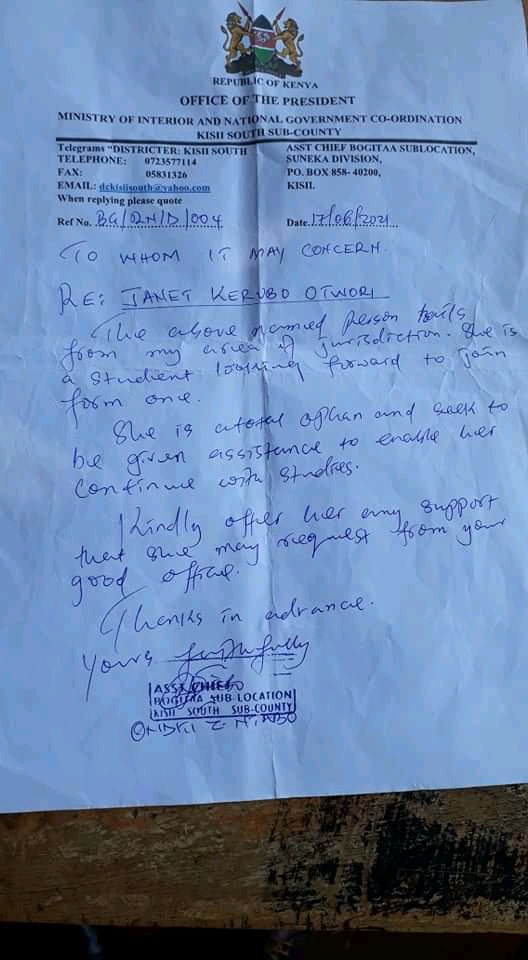 REPUBLIC OF KENYA
OFFICE OF THE PRESIDENT
MINISTRY OF INTERIOR AND NATIONAL GOVERNMENT CO-ORDINATION
KISII SOUTH SUB-COUNTY
Telegrams "DISTRICTER: KISII SOUTH
TELEPHONE: 0723577114
FAX: 05831326
EMAIL: dckisiisouth@yahoo.com
When replying please quote
Ref No. BG/RN/D/004
ASST CHIEF BOGITAA SUBLOCATION,
SUNEKA DIVISION,
PO. BOX 858- 40200,
KISII.
Date. 17/06/2021
TO WHOM IT MAY CONCERN.
RE: JANET KERUBO OTWORI
The above named person hails
from my area of jurisdiction. She is
a student looking forward to join
form one.
She is a total ophan and seek to
be given assistance to enable her
continue with studies.
Kindly offer her any support
that she may request from your
good office.
Thanks in advance.
Yours faithfully
ASST CHIEF
BOGITAA SUB LOCATION
KISII SOUTH SUB-COUNTY